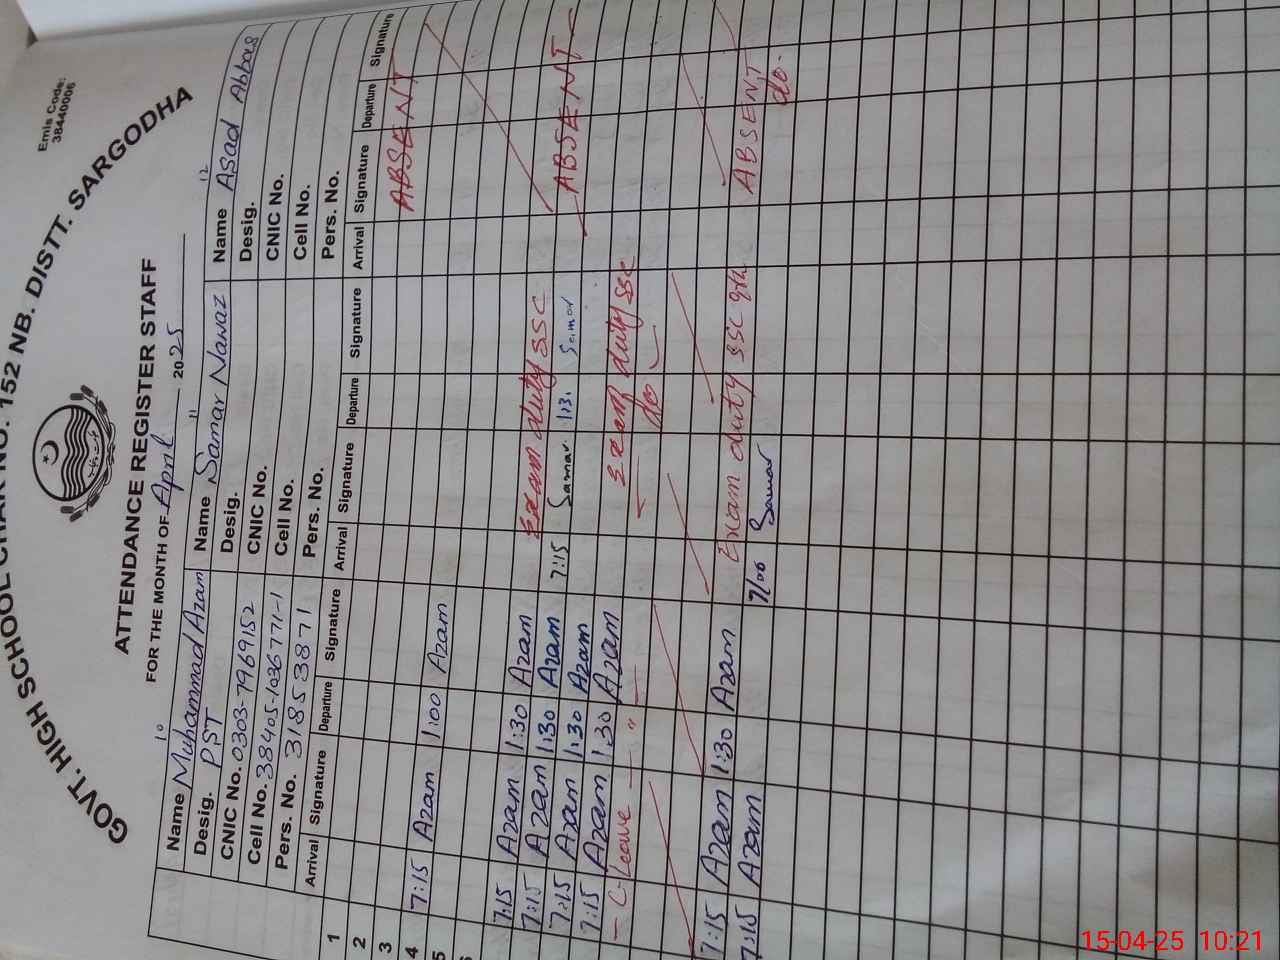 GOVT. HIGH SCHOOL CHAK NO. 152 NB. DISTT. SARGODHA
Emis Code:
38440006
ATTENDANCE REGISTER STAFF
FOR THE MONTH OF April 2025
10 11 12
Name Muhammad Azam Name Samar Nawaz Name Asad Abbas
Desig. PST Desig. Desig.
CNIC No. 0303-7969152 CNIC No. CNIC No.
Cell No. 38405-1036771-1 Cell No. Cell No.
Pers. No. 31853871 Pers. No. Pers. No.
Arrival Signature Departure Signature Arrival Signature Departure Signature Arrival Signature Departure Signature
1
2
3 ABSENT
4 7:15 Azam 1:00 Azam
5
6
7:15 Azam 1:30 Azam Exam duty SSC
7:15 Azam 1:30 Azam 7:15 Samar 1:31 Samar ABSENT
7:15 Azam 1:30 Azam
7:15 Azam 1:30 Azam Exam duty SSC
C-Leave " do
7:15 Azam 1:30 Azam Exam duty SSC 9th ABSENT
7:15 Azam 7:00 Samar do.
15-04-25 10:21